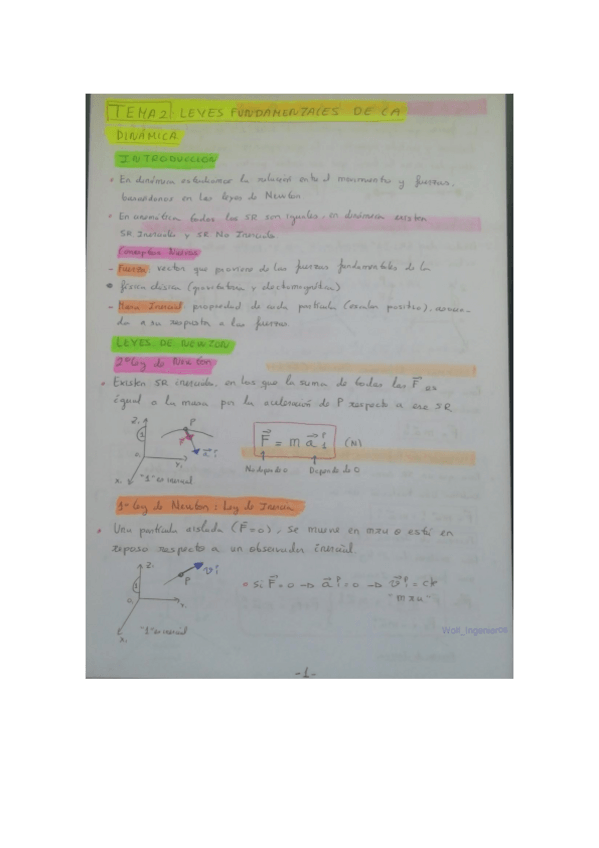 TEMA 2. LEYES FUNDAMENTALES DE LA
DINÁMICA
INTRODUCCION
• En dinámica estudiamos la relación entre el movimiento y fuerzas,
basándonos en las leyes de Newton.
• En cinemática todos los SR son iguales, en dinámica existen
SR Inerciales y SR No Inerciales
Conceptos Nuevos
- Fuerza: vector que proviene de las fuerzas fundamentales de la
física clásica (gravitatoria y electromagnética)
- Masa Inercial: propiedad de cada partícula (escalar positivo), asocia-
da a su respuesta a las fuerzas.
LEYES DE NEWTON
2ª Ley de Newton
• Existen SR inerciales, en los que la suma de todas las F⃗ es
igual a la masa por la aceleración de P respecto a ese SR
Z₁ P
F⃗ = m a⃗ ᴾ₁ (N)
No depende O Depende de O
X₁ "1" es inercial
1ª Ley de Newton: Ley de Inercia
• Una partícula aislada (F⃗=0), se mueve en mru o está en
reposo respecto a un observador inercial.
Z₁ P
• Si F⃗ = 0 → a⃗ ᴾ₁ = 0 → v⃗ ᴾ₁ = cte
"mru"
X₁ "1" es inercial
Wolf_Ingenieros
-1-